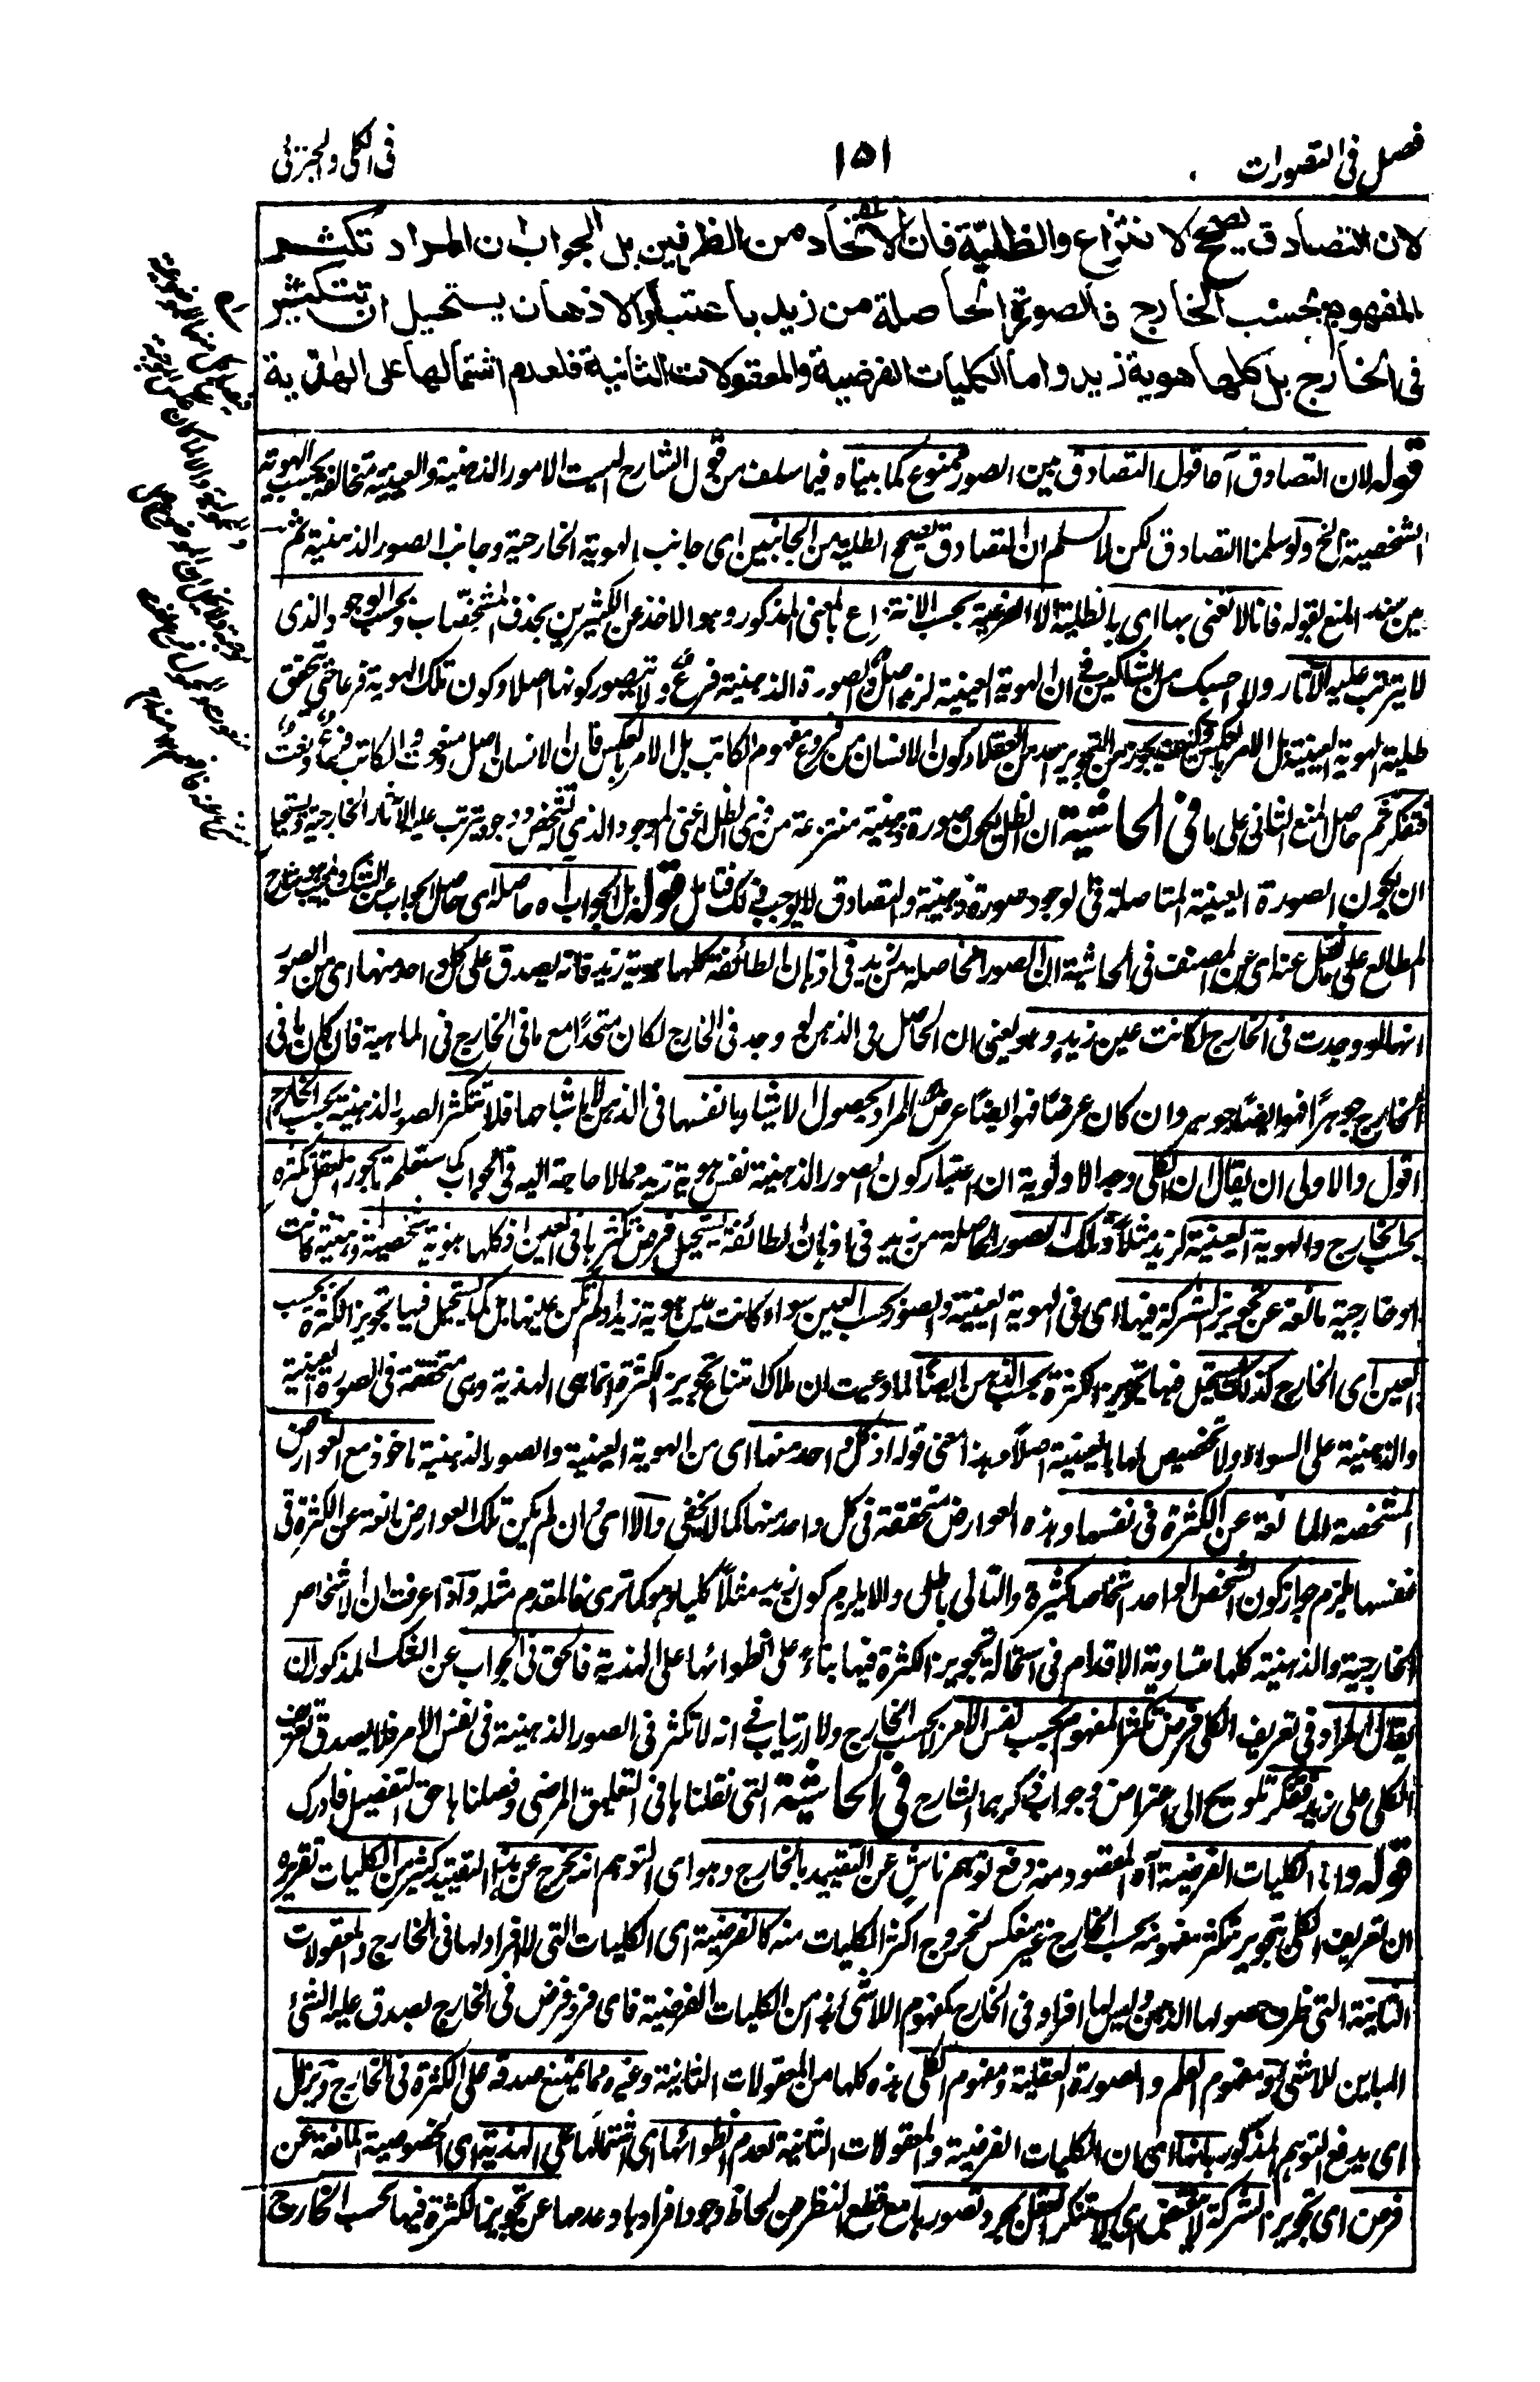 فصل فى التصورات
١٥١
فى الكلى والجزئى
لان التصادق يصحح الانتزاع والظلية فان الاتحاد من الطرفين بل الجواب ان المراد تكثر
المفهوم بحسب الخارج فالصورة الحاصلة من زيد باعتبار الاذهان يستحيل ان تتكثر
فى الخارج بل كلها هوية زيد واما الكليات الفرضية والمعقولات الثانية فلعدم اشتمالها على الهذية
قوله لان التصادق آه اقول التصادق بين الصور ممنوع كما بيناه فيما سلف من قول الشارح ليست الامور الذهنية والعينية متخالفة بحسب الهوية
الشخصية الخ ولو سلمنا التصادق لكن لا نسلم ان التصادق يصحح الظلية من الجانبين اى جانب الهوية الخارجية وجانب الصور الذهنية ثم
بين سند المنع بقوله فانا لا نعنى بها اى بالظلية الا الفرعية بحسب الانتزاع بالمعنى المذكور وهو الاخذ عن الكثيرين بحذف المشخصات وبحسب الوجود الذى
لا يترتب عليه الآثار ولا احسبك من الشاكين فى ان الهوية العينية لزيد اصل والصورة الذهنية فرع ولا يتصور كونها اصلا وكون تلك الهوية فرعا حتى يتحقق
ظلية الهوية العينية بل الامر بالعكس وكيف يجوز من التجويز احد من العقلاء كون الانسان من فروع مفهوم الكاتب بل الامر بالعكس فان الانسان اصل منعوت والكاتب فرع ونعت
فتفكر ثم حاصل المنع الثانى على ما فى الحاشية ان الظل يكون صورة ذهنية منتزعة من ذى الظل اعنى الموجود الذى وجوده يترتب عليه الآثار الخارجية ويستحيل
ان يكون الصورة العينية المتاصلة فى الوجود صورة ذهنية والتصادق لا يوجب ذلك فتامل قوله بل الجواب آه حاصله اى حاصل الجواب عن الشك والمجيب هو شارح
المطالع على ما نقل عنه اى عن المصنف فى الحاشية ان الصور الحاصلة من زيد فى اذهان الطائفة كلها هوية زيد فانه يصدق على كل واحد منها اى من الصور
انها لو وجدت فى الخارج لكانت عين زيد وهو يعنى ان الحاصل فى الذهن لو وجد فى الخارج لكان متحدا مع ما فى الخارج فى الماهية فان كان ما فى
الخارج جوهرا فهو ايضا جوهر وان كان عرضا فهو ايضا عرض المراد بحصول الاشياء بانفسها فى الذهن لا باشباحها فلا تتكثر الصور الذهنية بحسب الخارج
اقول والاولى ان يقال ان الكلى وجه الاولوية ان اعتبار كون الصور الذهنية نفس هوية زيد مما لا حاجة اليه فى الجواب كما ستعلم ما يجوز العقل تكثره
بحسب الخارج والهوية العينية لزيد مثلا وتلك الصور الحاصلة من زيد فى اذهان الطائفة يستحيل فرض تكثرها فى العين اذ كلها هوية شخصية ذهنية كانت
او خارجية مانعة عن تجويز الشركة فيها اى فى الهوية العينية والصور بحسب العين سواء كانت عين هوية زيد او لم تكن عينها بل كما يستحيل فيها تجويز الكثرة بحسب
العين اى الخارج كذلك يستحيل فيها تجويز الكثرة بحسب الذهن ايضا لما دعيت ان ملاك امتناع تجويز الكثرة انما هى الهذية وهى متحققة فى الصورة العينية
والذهنية على السواء ولا تخصيص لها بالعينية اصلا وهذا معنى قوله اذ كل واحد منها اى من الهوية العينية والصور الذهنية ماخوذ مع العوارض
المشخصة المانعة عن الكثرة فى نفسها وهذه العوارض متحققة فى كل واحد منها كما لا يخفى والا اى ان لم يكن تلك العوارض مانعة عن الكثرة فى
نفسها يلزم جواز كون الشخص الواحد اشخاصا كثيرة والتالى باطل والا يلزم كون زيد مثلا كليا وهو كما ترى فالمقدم مثله واذا عرفت ان الاشخاص
الخارجية والذهنية كلها متساوية الاقدام فى استحالة تجويز الكثرة فيها بناء على انطوائها على الهذية فالحق فى الجواب عن الشك المذكور ان
يقال المراد فى تعريف الكلى فرض تكثر المفهوم بحسب نفس الامر لا بحسب الخارج ولا ارتياب فى انه لا تكثر فى الصور الذهنية فى نفس الامر فلا يصدق تعريف
الكلى على زيد فتفكر تلويح الى اعتراض وجواب ذكرهما الشارح فى الحاشية التى نقلناها فى التعليق المرضى وفصلناها حق التفصيل فادرك
قوله واما الكليات الفرضية آه المقصود منه دفع توهم ناش عن التقييد بالخارج وهو اى التوهم انه يخرج عن هذا التقييد كثير من الكليات تقريره
ان تعريف الكلى بتجويز تكثر مفهومه بحسب الخارج غير منعكس لخروج اكثر الكليات منه كالفرضية اى الكليات التى لا افراد لها فى الخارج والمعقولات
الثانية التى ظرف حصولها الذهن وليس لها افراد فى الخارج كمفهوم اللاشئ هذا من الكليات الفرضية فاى فرد فرض فى الخارج يصدق عليه الشئ
المباين للاشئ ومفهوم العلم والصورة العقلية ومفهوم الكلى هذه كلها من المعقولات الثانية وغيره مما يمتنع صدقه على الكثرة فى الخارج ويزال
اى يدفع التوهم المذكور بانها اى ان الكليات الفرضية والمعقولات الثانية لعدم انطوائها اى اشتمالها على الهذية اى الخصوصية المانعة عن
فرض اى تجويز الشركة لا ينقبض اى لا يستنكر العقل بمجرد تصورها مع قطع النظر من لحاظ وجود افرادها وعدمها عن تجويز الكثرة فيها بحسب الخارج